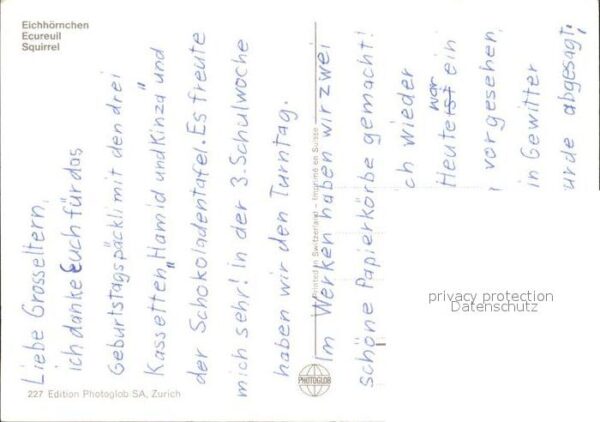 Eichhörnchen
Ecureuil
Squirrel
Liebe Grosseltern,
ich danke Euch für das
Geburtstagspäckli mit den drei
Kassetten „Hamid und Kinza" und
der Schokoladentafel. Es freute
mich sehr! In der 3. Schulwoche
haben wir den Turntag.
Im Werken haben wir zwei
schöne Papierkörbe gemacht!
ch wieder
Heute ist war ein
vorgesehen,
in Gewitter
urde abgesagt;
Printed in Switzerland – Imprimé en Suisse
PHOTOGLOB
privacy protection
Datenschutz
227 Edition Photoglob SA, Zurich